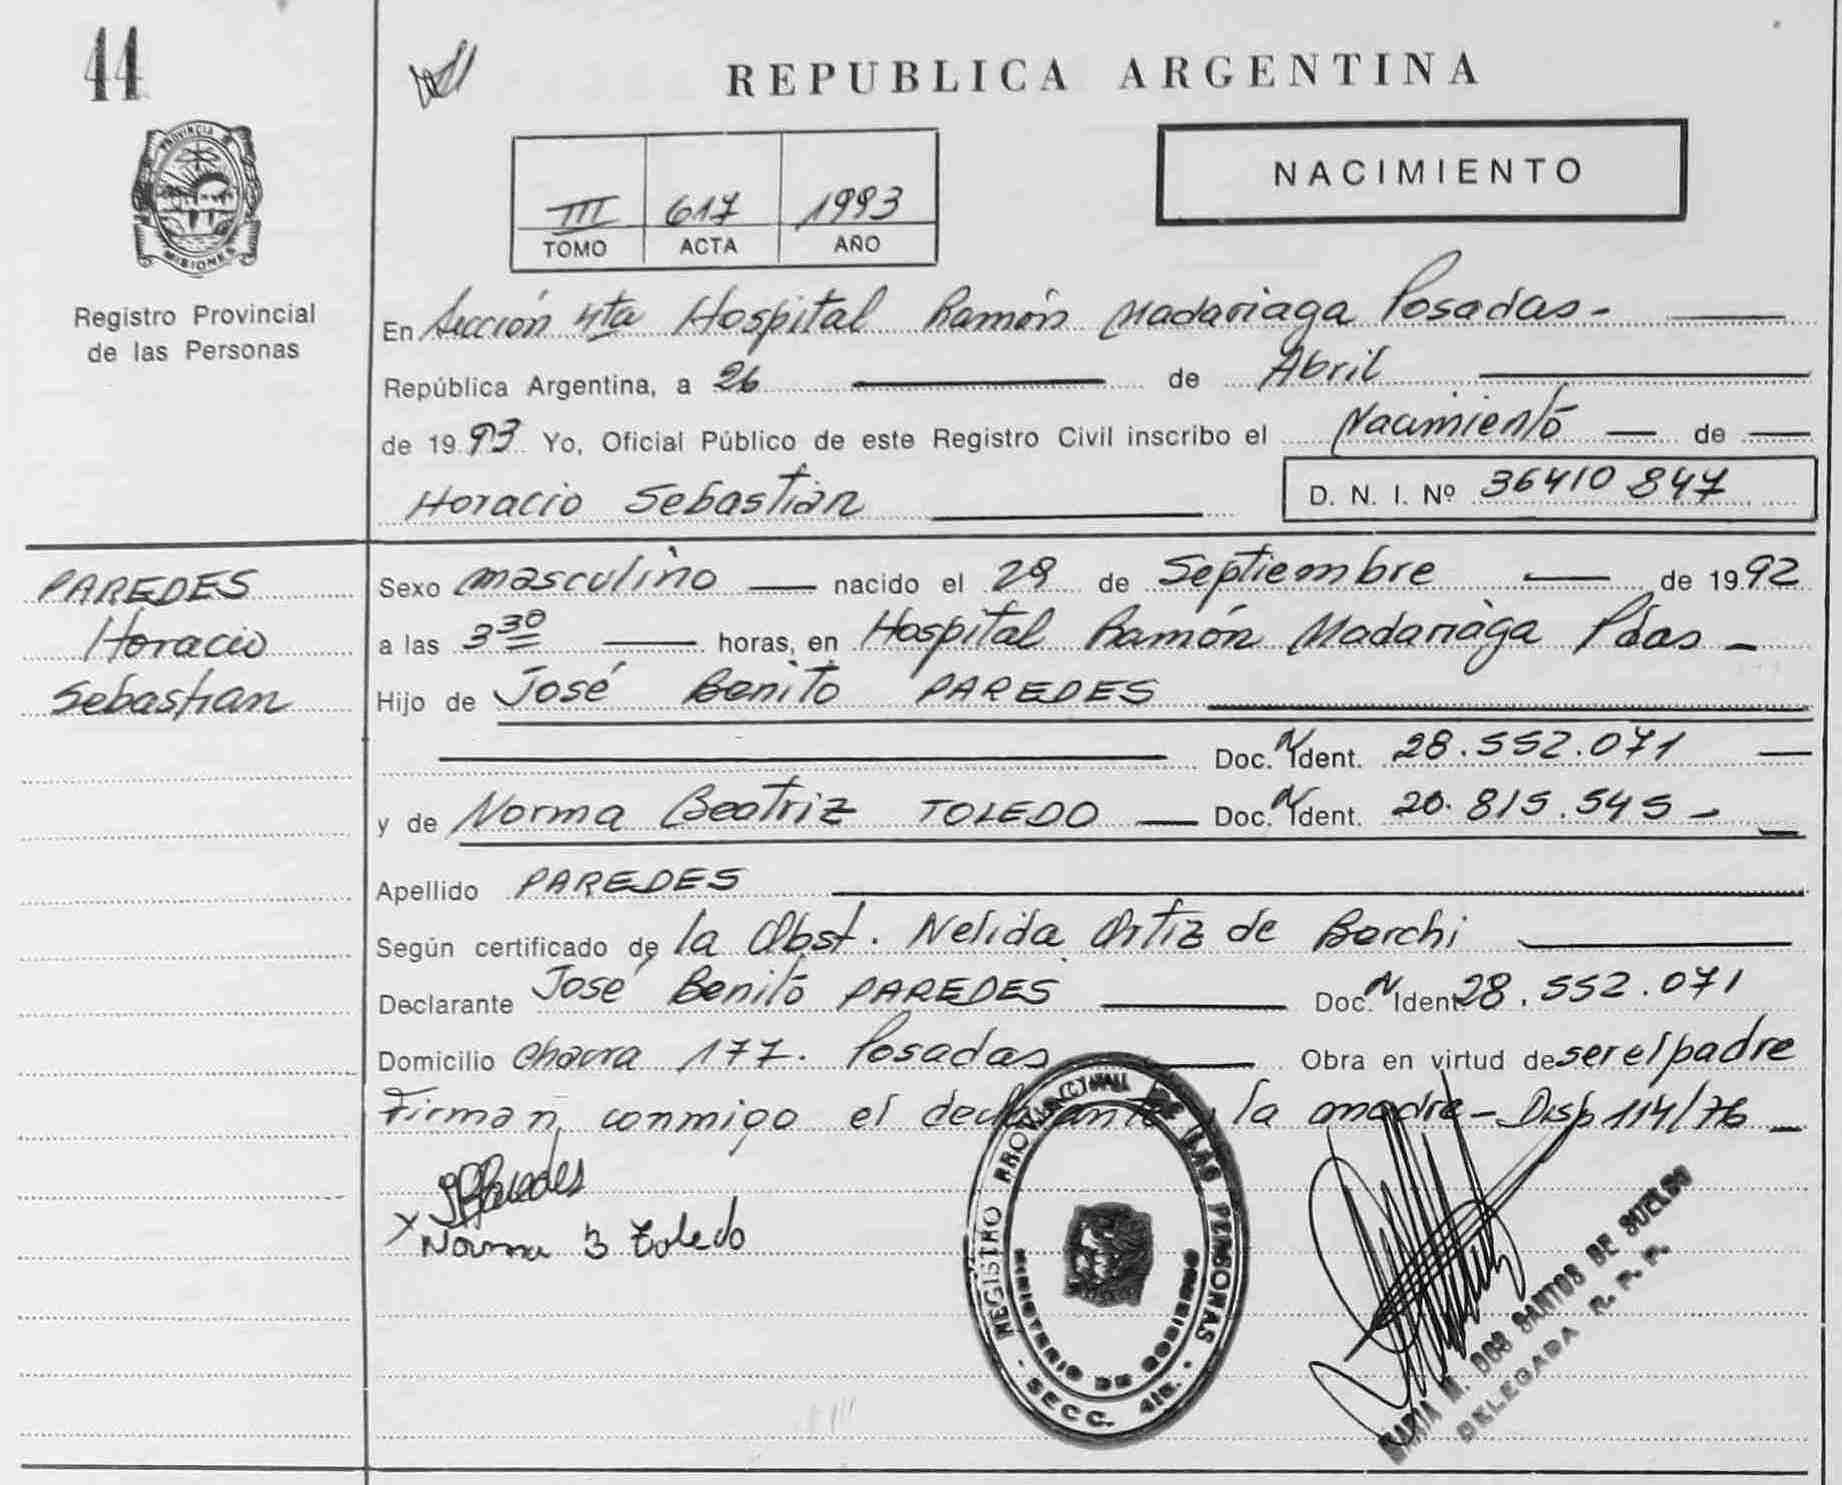 44
REPUBLICA ARGENTINA
PROVINCIA
MISIONES
Registro Provincial
de las Personas
III 617 1993
TOMO ACTA AÑO
NACIMIENTO
En Sección 4ta Hospital Ramón Madariaga Posadas.-
República Argentina, a 26 de Abril
de 1993 Yo, Oficial Público de este Registro Civil inscribo el Nacimiento de
Horacio Sebastián D. N. I. Nº 36410 847
PAREDES
Horacio
Sebastian
Sexo masculino nacido el 29 de Septiembre de 1992
a las 3 30 horas, en Hospital Ramón Madariaga Pdas -
Hijo de José Benito PAREDES
Doc. N Ident. 28.552.071
y de Norma Beatriz TOLEDO Doc. N Ident. 20.815.545 -
Apellido PAREDES
Según certificado de la Obst. Nelida Ortiz de Borchi
Declarante José Benito PAREDES Doc. N Ident. 28.552.071
Domicilio Chacra 177. Posadas Obra en virtud de ser el padre
Firman conmigo el declarante y la madre - Disp 114/76 -
Paredes
x Norma B Toledo
REGISTRO PROVINCIAL DE LAS PERSONAS
MINISTERIO DE GOBIERNO
SECC. 4ta.
MARIA M. DOS SANTOS DE SUELDO
DELEGADA R. P. P.